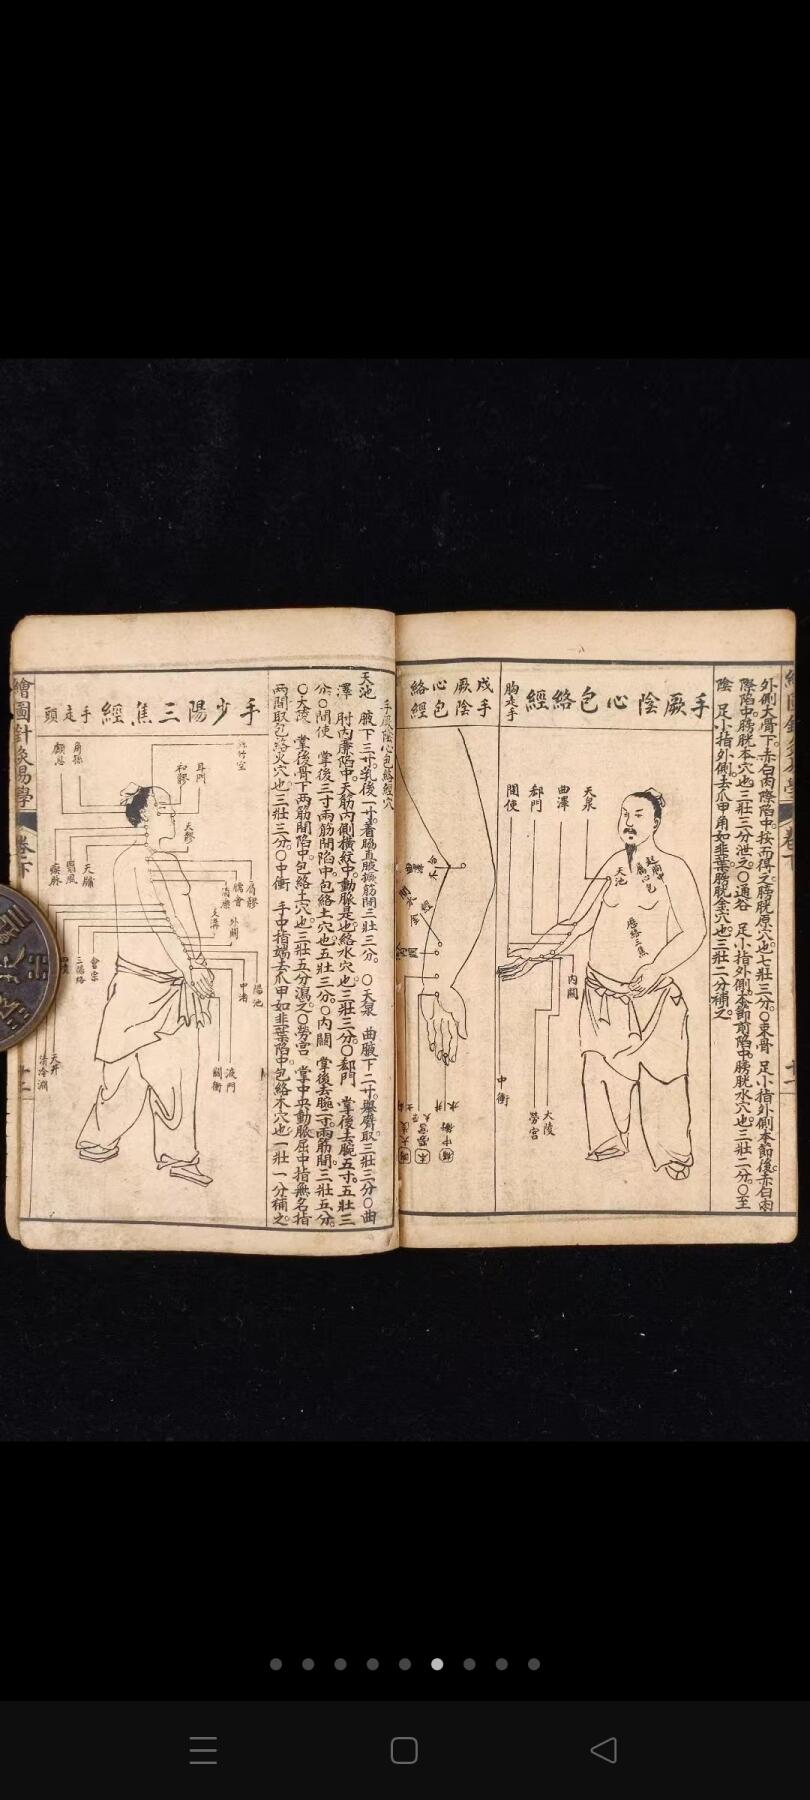 外側大骨下赤白肉際陷中按而得之膀胱原穴也七壯三分〇束骨 足小指外側本節後赤白肉
際陷中膀胱本穴也三壯三分泄之〇通谷 足小指外側本節前陷中膀胱水穴也三壯二分〇至
陰 足小指外側去爪甲角如韭葉膀胱金穴也三壯二分補之
手厥陰心包絡經
胸走手
天泉
曲澤
郄門
間使
天池
起胸中
屬心包
歷絡三焦
內關
中衝
大陵
勞宮
戌手
厥陰
心包
絡經
手厥陰心包絡經穴
天池 腋下三寸乳後一寸着脇直腋撅筋間三壯三分 〇天泉 曲腋下二寸舉臂取三壯三分〇曲
澤 肘內廉陷中大筋內側橫紋中動脈是也絡水穴也三壯三分〇郄門 掌後去腕五寸五壯三
分〇間使 掌後三寸兩筋間陷中包絡土穴也五壯三分〇內關 掌後去腕二寸兩筋間三壯五分
〇大陵 掌後骨下兩筋間陷中包絡土穴也三壯五分瀉之〇勞宮 掌中央動脈屈中指無名指
兩間取包絡火穴也三壯三分〇中衝 手中指端去爪甲如韭葉陷中包絡木穴也一壯一分補之
手少陽三焦經
手走頭
絲竹空
耳門
和髎
角孫
顱息
天髎
天牖
翳風
瘈脈
肩髎
臑會
消濼
外關
支溝
會宗
三陽絡
陽池
中渚
液門
關衝
天井
清冷淵
繪圖針灸易學
卷下
十二